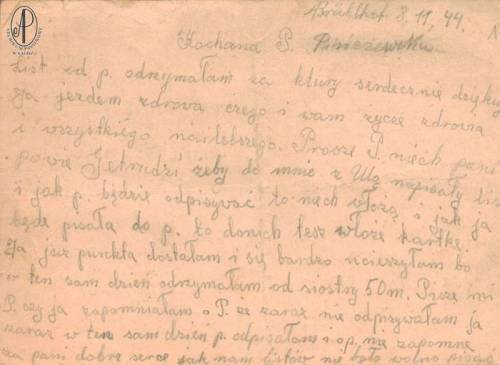 Brühlhof. 8, 11, 44.
Kochana P.
List od p. odrzymałam za ktury serdecznie dzięky
Ja jezdem zdrova czego i wam rzyczę zdrovia
i wszystkiego nailebszego. Prosze P. niech pani
povie żeby do mnie z Ulą napisały lis
i jak p. będzie odpisywać to niech włożą i jak ja
będe pisała do p. to do nich tesz włoże kartkę.
Ja jusz punkta dostałam i się bardzo ucieszyłam bo
w ten sam dzień odrzymałam od siostry 50 m. Pisze mi
P. czy ja zapomniałam o P. że zaraz nie odpisywałam ja
zaraz w ten sam dzień p. odpisałam i o p. nie zapomnę
za pani dobre serce jak nam listów nie było wolno pisać